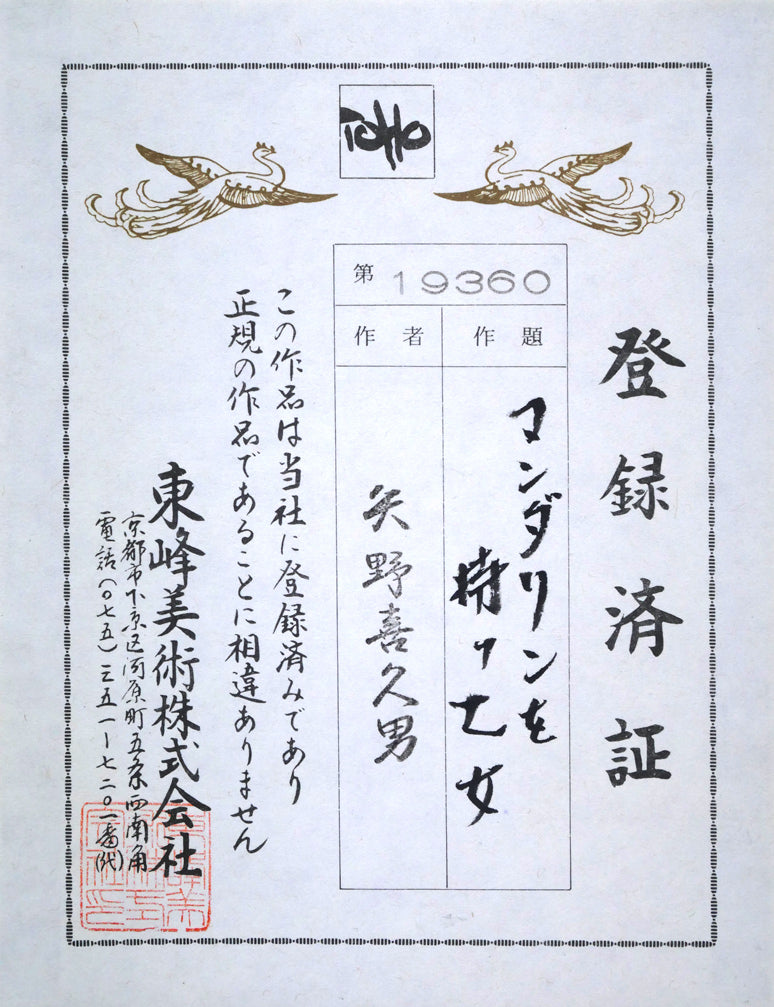 TOHO
登録済証
第 19360
作題
マンダリンを
持つ乙女
作者
矢野喜久男
この作品は当社に登録済みであり
正規の作品であることに相違ありません
東峰美術株式会社
京都市下京区河原町五条西南角
電話(〇七五)三五一ー七二〇一番(代)